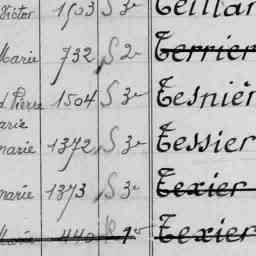 Victor 1503 S 3e Teillar
Marie 732 S 2e Terrier
d. Pierre 1504 S 3e Tesnièr
arie
marie 1372 S 3e Tessier
marie 1373 S 3e Texier
Marie 440 1e Texier